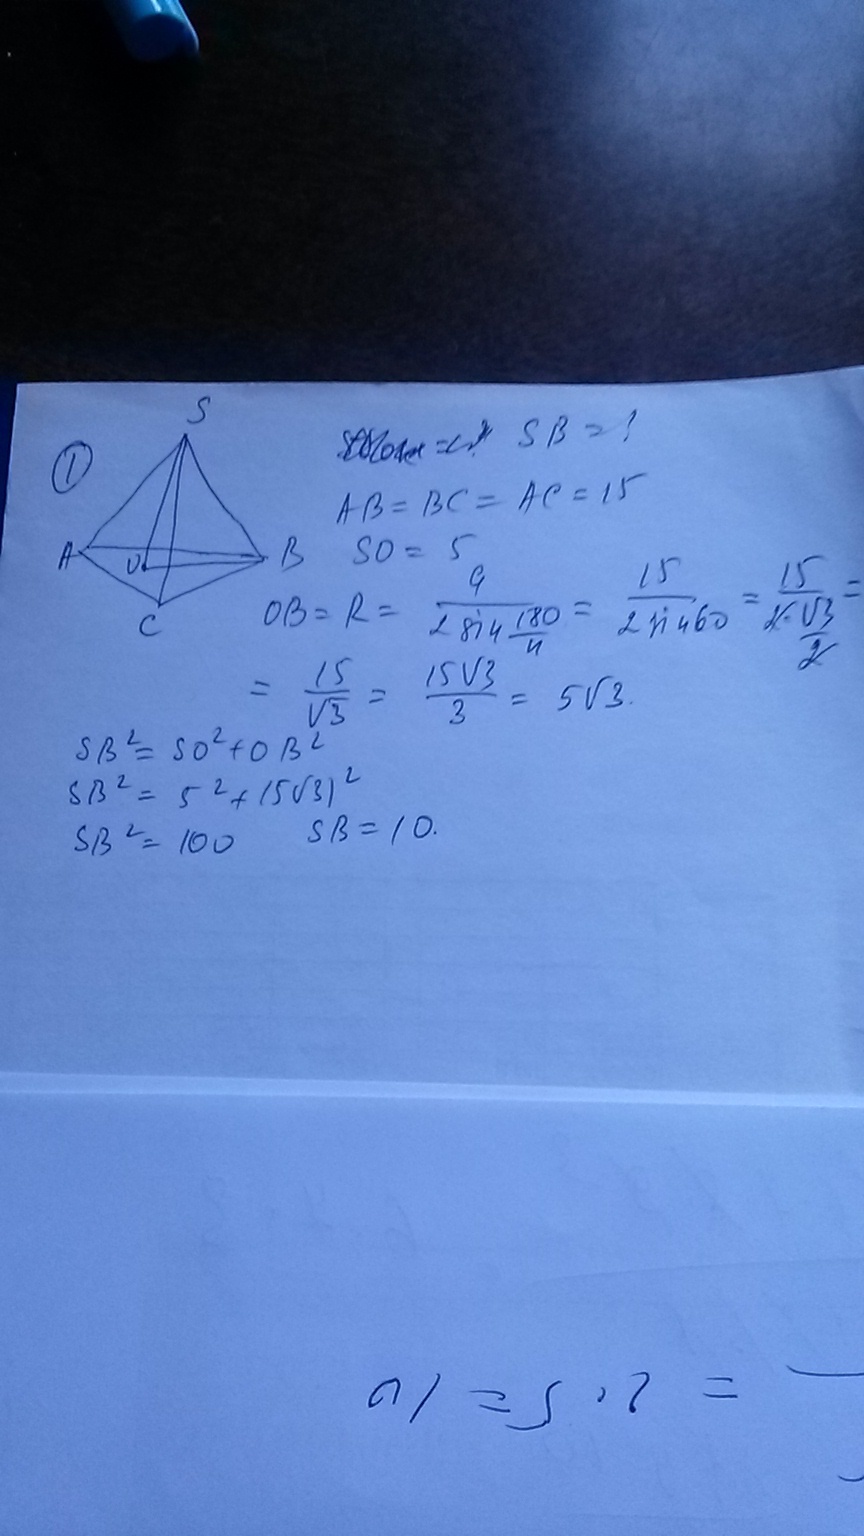 S
① SB = ?
AB = BC = AC = 15
A O B SO = 5
C OB = R = a/(2 sin 180/n) = 15/(2 sin 60) = 15/(2·√3/2) =
= 15/√3 = 15√3/3 = 5√3.
SB² = SO² + OB²
SB² = 5² + (5√3)²
SB² = 100 SB = 10.
= 2·5 = 10